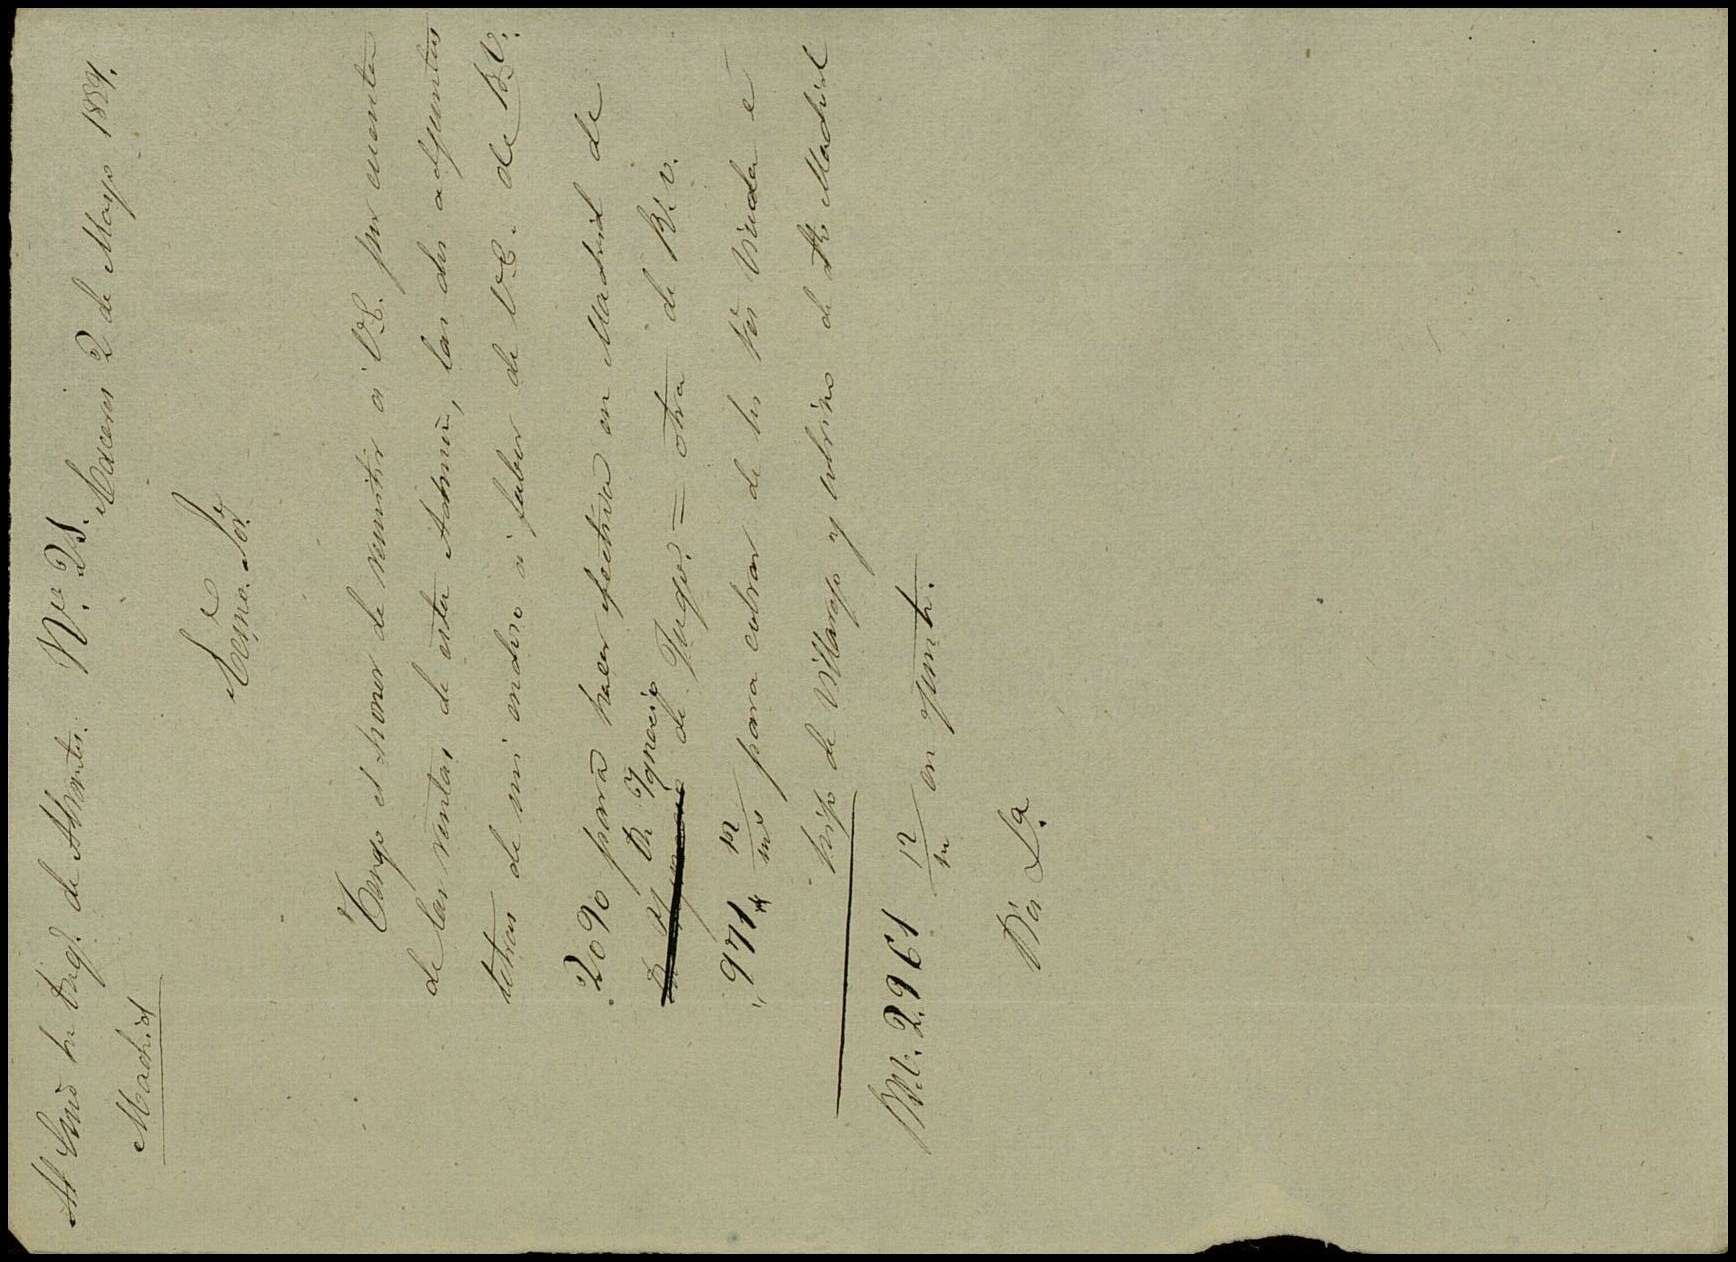 Al Exmo Sr Duq.e de Abrantes. N.º 28. Caceres 2 de Mayo 1859.
Madrid
Exmo. Sōr.
Tengo el honor de remitir á V.E. por cuenta
de las rentas de esta Admon, las dos adjuntas
letras de mi endoso á fabor de V.E. de R.V.
2090 para hacer efectiva en Madrid de
D. Ygnacio de = otra de R. v.
" 971 12/ms para cobrar de los Sres Viuda é
hijo de Villarejo y sobrino de Madrid
RV. 2.961 12/m en junto.
Dios La